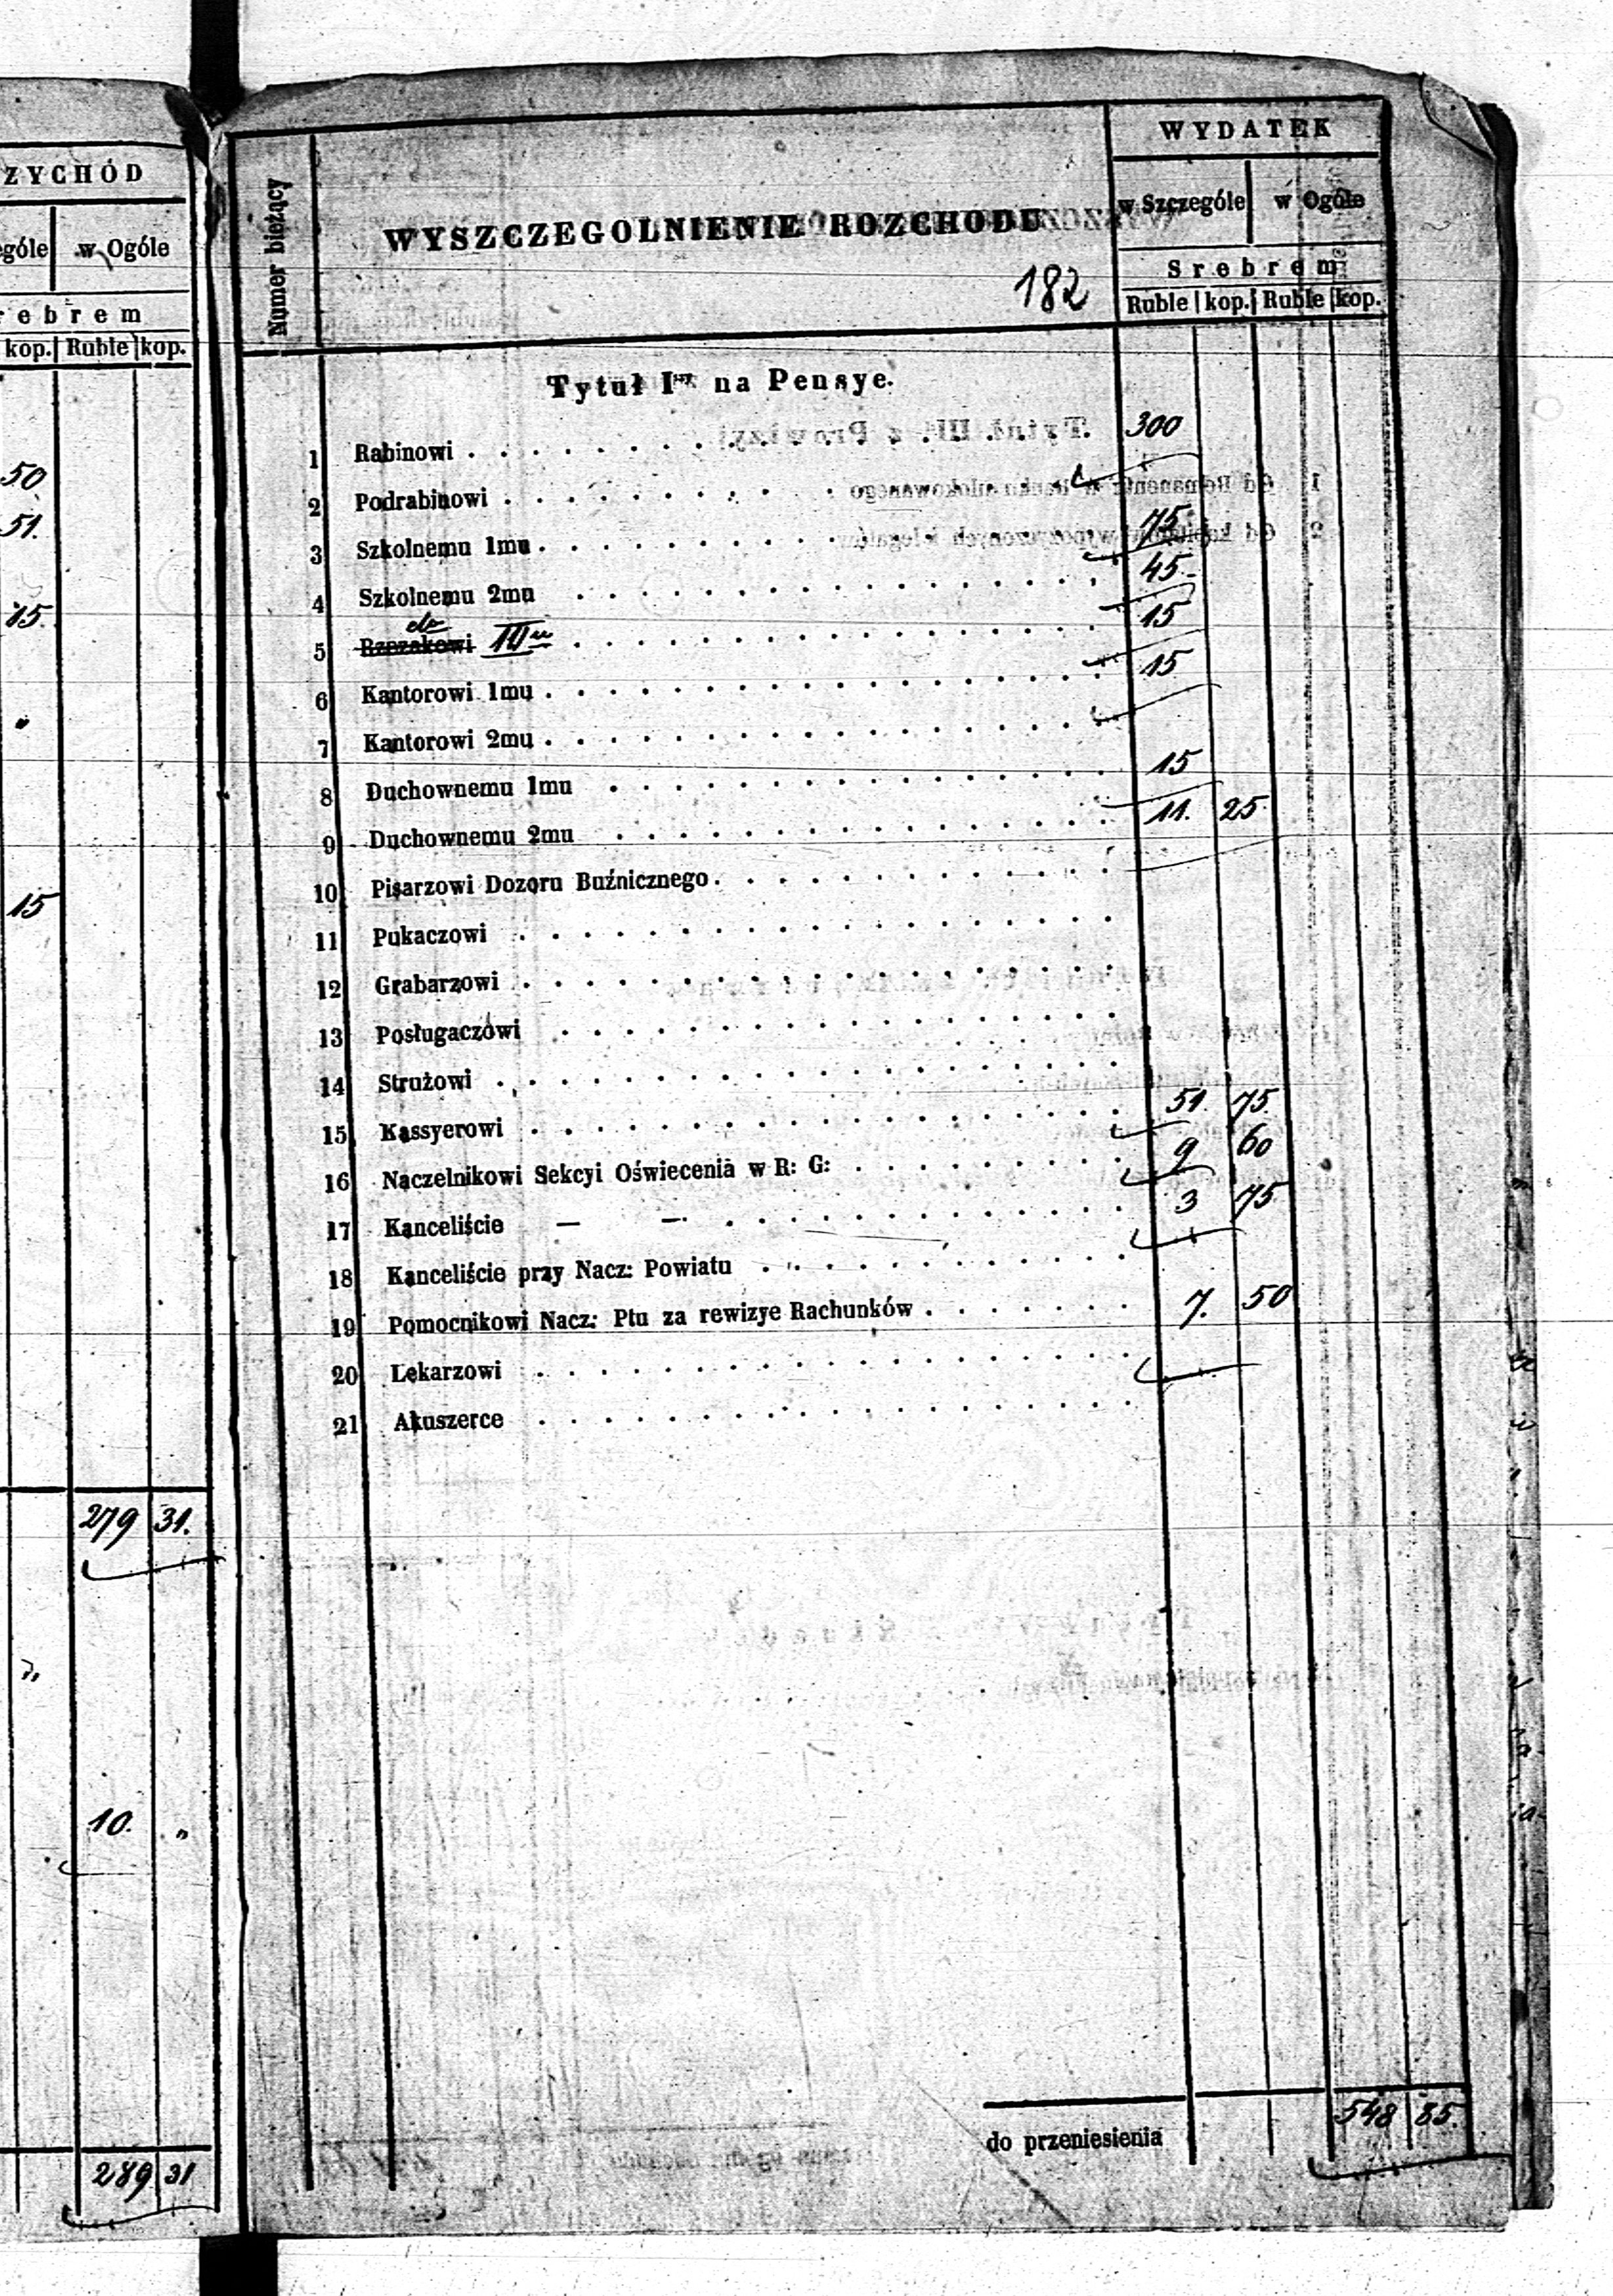 ZYCHÓD
góle w Ogóle
rebrem
kop. Ruble kop.
50
51.
15.
"
15
279 31.
"
10. "
289 31
WYDATEK
Numer bieżący
WYSZCZEGOLNIENIE ROZCHODU
w Szczególe w Ogóle
Srebrem
182
Ruble kop. Ruble kop.
Tytuł I na Pensye.
1 Rabinowi . . . . . . . 300
2 Podrabinowi . . . . . . .
3 Szkolnemu 1mu . . . . . . . 75
4 Szkolnemu 2mu . . . . . . . 45
5 Rzezakowi do III . . . . . . . 15
6 Kantorowi 1mu . . . . . . . 15
7 Kantorowi 2mu . . . . . . .
8 Duchownemu 1mu . . . . . . . 15
9 Duchownemu 2mu . . . . . . . 11. 25
10 Pisarzowi Dozoru Buźnicznego . . . . . . .
11 Pukaczowi . . . . . . .
12 Grabarzowi . . . . . . .
13 Posługaczowi . . . . . . .
14 Strużowi . . . . . . .
15 Kassyerowi . . . . . . . 51. 75.
16 Naczelnikowi Sekcyi Oświecenia w R: G: . . . . . . . 9 60
17 Kanceliście — — . . . . . . . 3 75
18 Kanceliście przy Nacz: Powiatu . . . . . . .
19 Pomocnikowi Nacz: Ptu za rewizye Rachunków . . . . . . . 7. 50
20 Lekarzowi . . . . . . .
21 Akuszerce . . . . . . .
do przeniesienia 548 85.